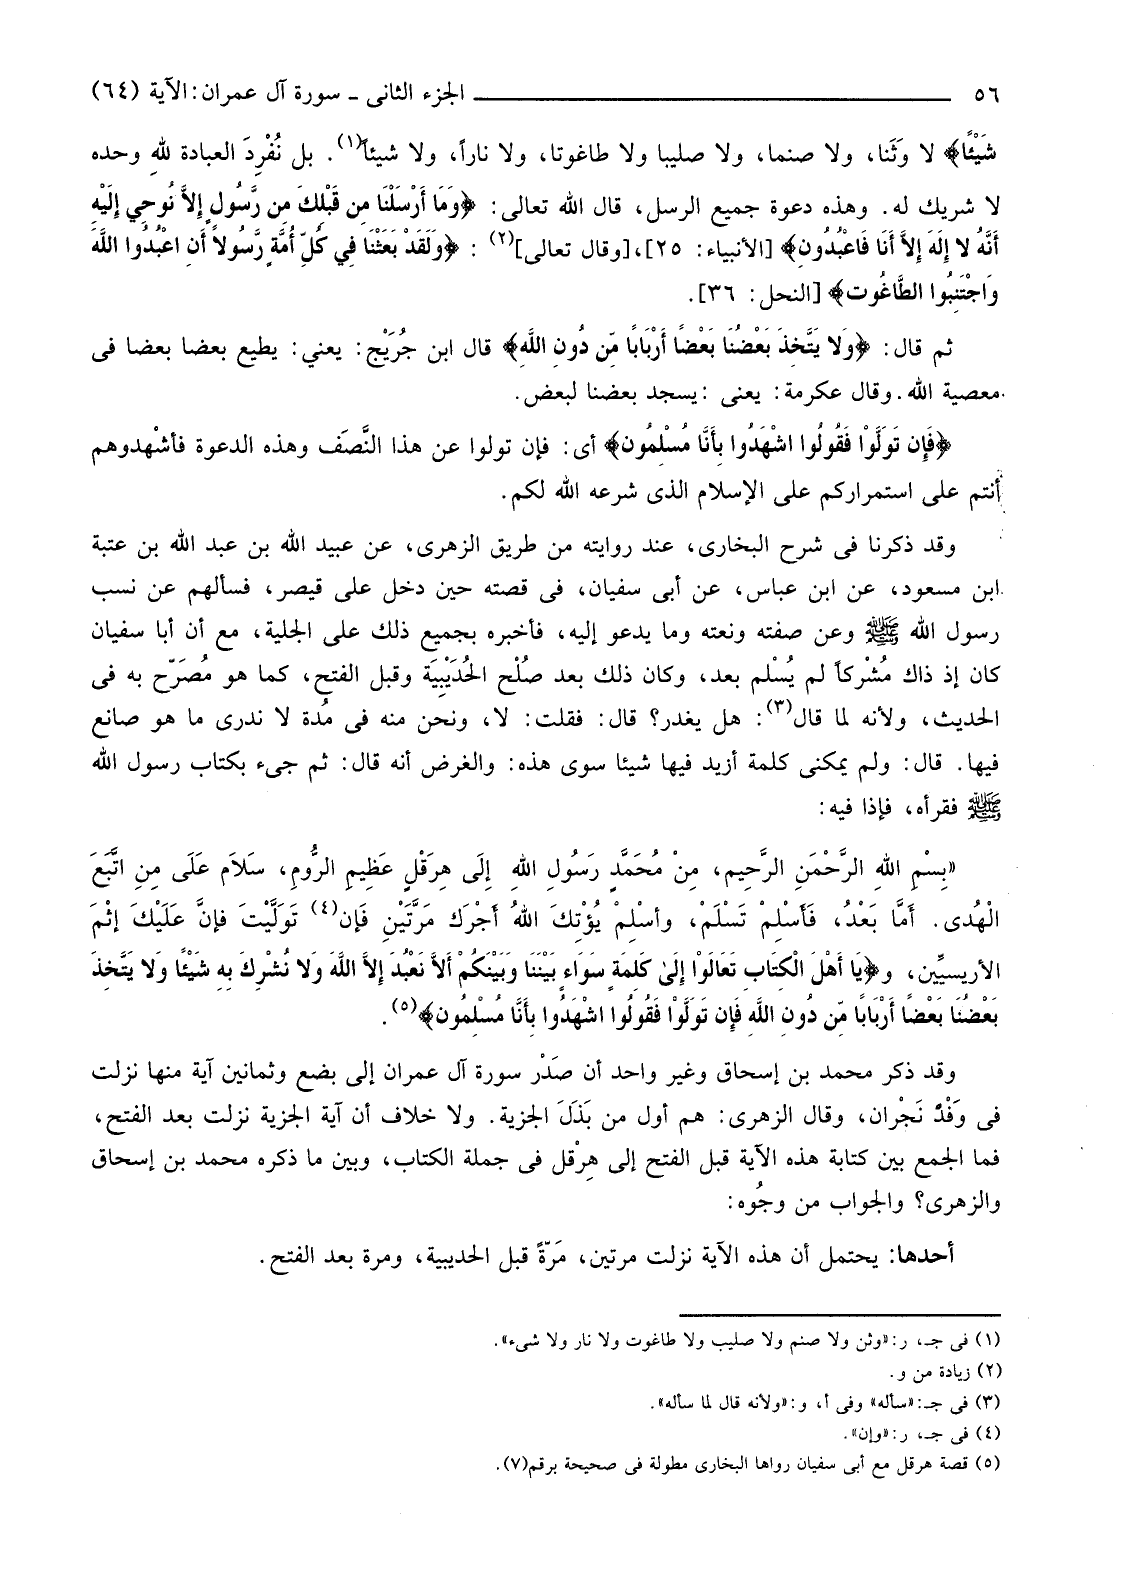 ٥٦ ــــــــــــــــــــ الجزء الثانى ـ سورة آل عمران: الآية (٦٤)
شَيْئًا﴾ لا وَثَنا، ولا صنما، ولا صليبا ولا طاغوتا، ولا ناراً، ولا شيئاً(١). بل نُفْرِدَ العبادة للهِ وحده
لا شريك له. وهذه دعوة جميع الرسل، قال الله تعالى: ﴿وَمَا أَرْسَلْنَا مِن قَبْلِكَ مِن رَّسُولٍ إِلاَّ نُوحِي إِلَيْهِ
أَنَّهُ لا إِلَهَ إِلاَّ أَنَا فَاعْبُدُونِ﴾ [الأنبياء: ٢٥]،[وقال تعالى](٢) : ﴿وَلَقَدْ بَعَثْنَا فِي كُلِّ أُمَّةٍ رَّسُولاً أَنِ اعْبُدُوا اللَّهَ
وَاجْتَنِبُوا الطَّاغُوتَ﴾ [النحل: ٣٦].
ثم قال: ﴿وَلا يَتَّخِذَ بَعْضُنَا بَعْضًا أَرْبَابًا مِّن دُونِ اللَّهِ﴾ قال ابن جُرَيْج: يعني: يطيع بعضا بعضا فى
معصية الله. وقال عكرمة: يعنى :يسجد بعضنا لبعض.
﴿فَإِن تَوَلَّوْا فَقُولُوا اشْهَدُوا بِأَنَّا مُسْلِمُون﴾ أى: فإن تولوا عن هذا النَّصَف وهذه الدعوة فأشْهدوهم
أنتم على استمراركم على الإسلام الذى شرعه الله لكم.
وقد ذكرنا فى شرح البخارى، عند روايته من طريق الزهرى، عن عبيد الله بن عبد الله بن عتبة
ابن مسعود، عن ابن عباس، عن أبى سفيان، فى قصته حين دخل على قيصر، فسألهم عن نسب
رسول الله ﷺ وعن صفته ونعته وما يدعو إليه، فأخبره بجميع ذلك على الجلية، مع أن أبا سفيان
كان إذ ذاك مُشْركاً لم يُسْلم بعد، وكان ذلك بعد صُلْح الحُدَيْبِيَة وقبل الفتح، كما هو مُصَرّح به فى
الحديث، ولأنه لما قال(٣): هل يغدر؟ قال: فقلت: لا، ونحن منه فى مُدة لا ندرى ما هو صانع
فيها. قال: ولم يمكنى كلمة أزيد فيها شيئا سوى هذه: والغرض أنه قال: ثم جىء بكتاب رسول الله
ﷺ فقرأه، فإذا فيه:
«بِسْمِ اللهِ الرَّحْمَنِ الرَّحِيمِ، مِنْ مُحَمَّدٍ رَسُولِ اللهِ إِلَى هِرَقْلِ عَظِيمِ الرُّومِ، سَلاَم عَلَى مِنِ اتَّبَعَ
الْهُدَى. أمَّا بَعْدُ، فَأَسْلِمْ تَسْلَمْ، وأسْلِمْ يُؤْتِكَ اللهُ أجْرَك مَرَّتَيْنِ فَإن(٤) تَوَلَّيْتَ فإنَّ عَلَيْكَ إثْمَ
الأريسيِّين، و﴿يَا أَهْلَ الْكِتَابِ تَعَالَوْا إِلَىٰ كَلِمَةٍ سَوَاءٍ بَيْنَنَا وَبَيْنَكُمْ أَلاَّ نَعْبُدَ إِلاَّ اللَّهَ وَلا نُشْرِكَ بِهِ شَيْئًا وَلا يَتَّخِذَ
بَعْضُنَا بَعْضًا أَرْبَابًا مِّن دُونِ اللَّهِ فَإِن تَوَلَّوْا فَقُولُوا اشْهَدُوا بِأَنَّا مُسْلِمُون﴾(٥).
وقد ذكر محمد بن إسحاق وغير واحد أن صَدْر سورة آل عمران إلى بضع وثمانين آية منها نزلت
فى وَفْد نَجْران، وقال الزهرى: هم أول من بَذَلَ الجزية. ولا خلاف أن آية الجزية نزلت بعد الفتح،
فما الجمع بين كتابة هذه الآية قبل الفتح إلى هِرْقل فى جملة الكتاب، وبين ما ذكره محمد بن إسحاق
والزهرى؟ والجواب من وجُوه:
أحدها: يحتمل أن هذه الآية نزلت مرتين، مَرّةً قبل الحديبية، ومرة بعد الفتح.
(١) فى جـ، ر:«وثن ولا صنم ولا صليب ولا طاغوت ولا نار ولا شىء».
(٢) زيادة من و.
(٣) فى جـ:«سأله» وفى أ، و:«ولأنه قال لما سأله».
(٤) فى جـ، ر:«وإن».
(٥) قصة هرقل مع أبى سفيان رواها البخارى مطولة فى صحيحة برقم(٧).